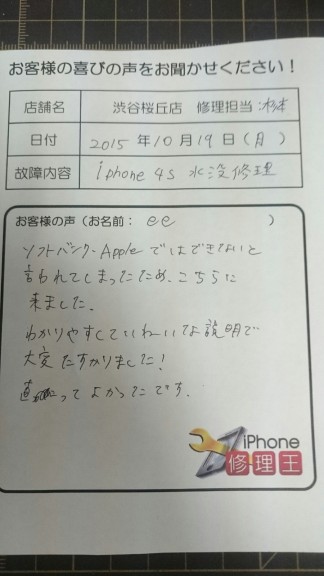 お客様の喜びの声をお聞かせください！
店舗名 渋谷桜丘店 修理担当：杉本
日付 2015 年 10 月 19 日 ( 月 )
故障内容 iphone 4S 水没修理
お客様の声（お名前： ee ）
ソフトバンク・Appleではできないと
言われてしまったため、こちらに
来ました。
わかりやすくていねいな説明で
大変たすかりました！
直ってよかったです。
iPhone
修理王